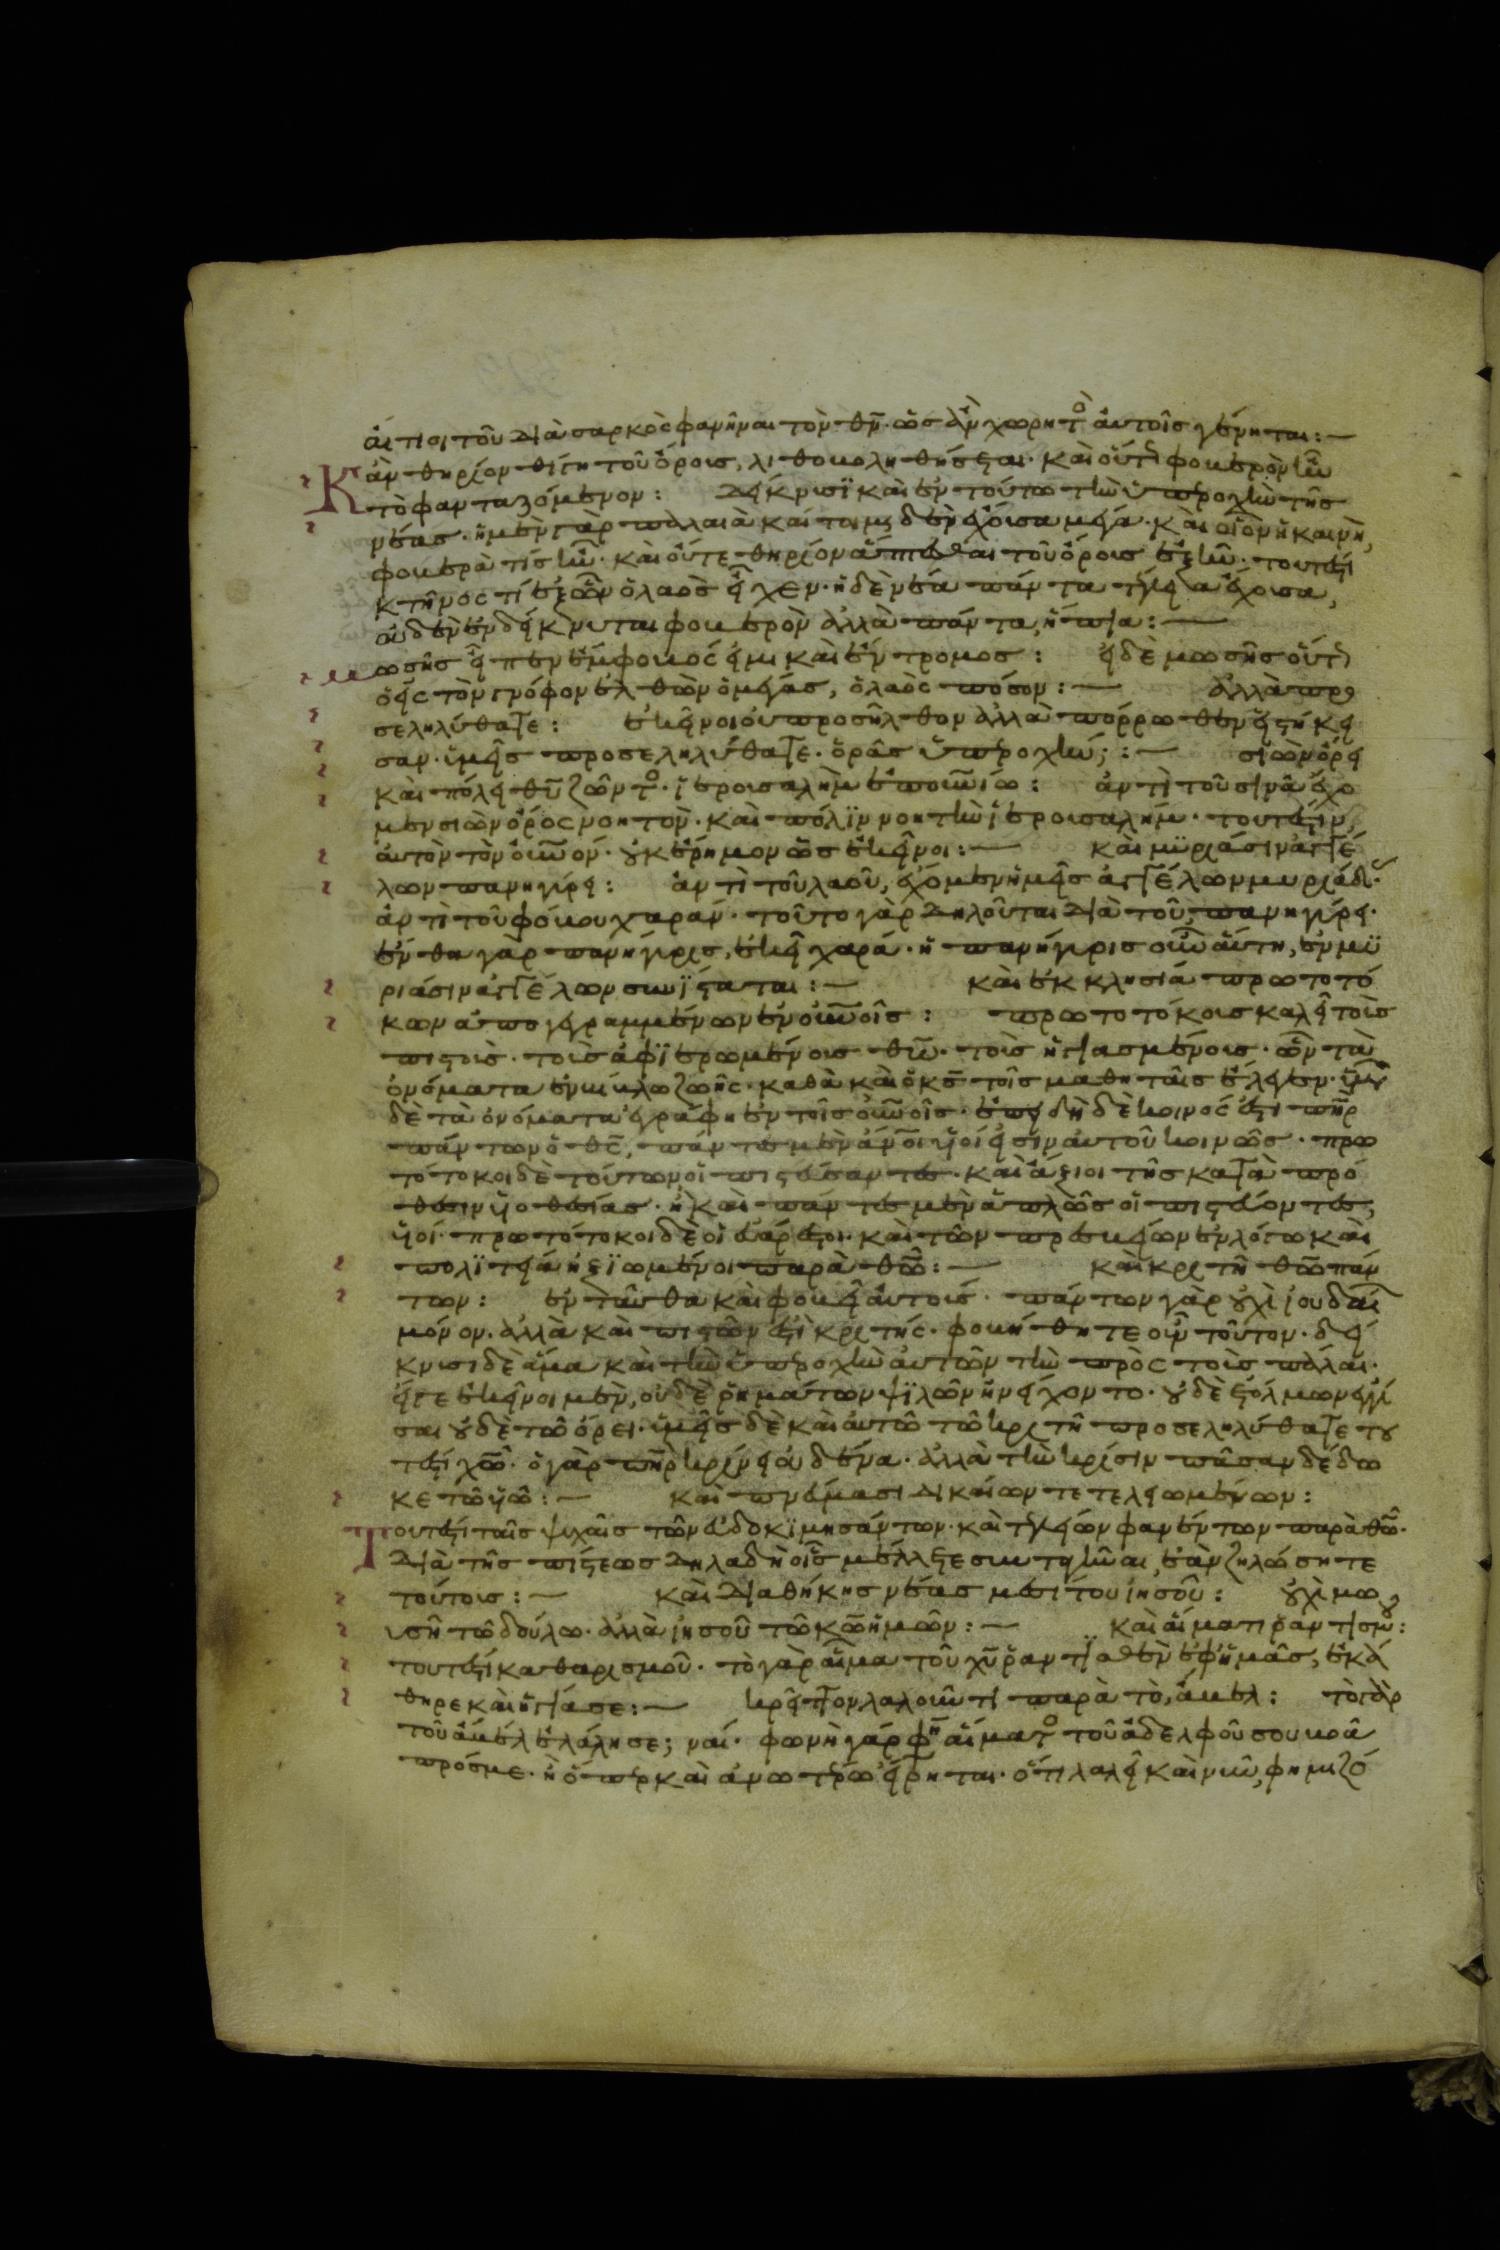 αἴτησι τοῦ διὰ σαρκὸς φανῆναι τὸν θν. ὡς ἂν χωρητὸ αὐτοῖς γένηται:—
Κἂν θηρίον θίγη τοῦ ὄρους, λιθοβοληθήσεται. καὶ οὕτω φοβερὸν ἦν
τὸ φανταζόμενον: Δείκνυσϊ καὶ ἐν τούτω τὴν ὑπεροχὴν τῆς
νέας. ἡ μὲν γὰρ παλαιὰ καί τοι μηδὲν ἔχουσα μέγα. καὶ οἷον ἡ καινὴ,
φοβερὰ τίς ἦν. καὶ οὔτε θηρίον ἅπτεσθαι τοῦ ὄρους ἐξῆν. τουτέστι
κτῆνος τί ἐξ ὧν ὁ λαὸς εἶχεν. ἡ δὲ νέα πάντα τίμια ἔχουσα,
οὐδὲν ἐνδείκνυται φοβερὸν ἀλλὰ πάντα, ἤπια:—
μωσῆς εἶπεν ἔμφοβός εἰμι καὶ ἔντρομος: εἰ δὲ μωσῆς οὕτω
ὁ εἰς τὸν γνόφον ἐλθὼν ὁ μέγας, ὁ λαὸς πόσον:— ἀλλὰ προ
σεληλύθατε: ἐκεῖνοι οὐ προσῆλθον ἀλλὰ πόρρωθεν εἱστήκει
σαν. ὑμεῖς προσεληλύθατε. ὁρᾶς ὑπεροχήν; :— σιὼν ὄρει
καὶ πόλει θυ ζῶντο. ϊερουσαλὴμ ἐπουνίω: ἀντὶ τοῦ σινᾶ ἔχο
μεν σιὼν ὄρος νοητὸν. καὶ πόλϊν νοητὴν ϊερουσαλήμ. τουτέστιν,
αὐτὸν τὸν οὐνον. οὐκ ἔρημον ὡς ἐκεῖνοι:— καὶ μϋριάσιν ἀγγέ
λων πανηγύρει: ἀντὶ τοῦ λαοῦ, ἔχομεν ἡμεῖς ἀγγέλων μυριάδας.
ἀντὶ τοῦ φόβου χαράν. τοῦτο γὰρ δηλοῦται διὰ τοῦ, πανηγύρει.
ἔνθα γὰρ πανήγυρις, ἐκεῖ χαρά. ἡ πανήγυρις οὖν αὕτη, ἐν μϋ
ριάσιν ἀγγέλων συνΐσταται:— καὶ ἐκκλησία πρωτοτό
κων ἀπογεγραμμένων ἐν οὐνοῖς: πρωτοτόκους καλεῖ τοὺς
πιστοὺς. τοὺς ἀφϊερωμένους θῶ. τοὺς ἡγιασμένους. ὧν τὰ
ὀνόματα ἐν βίβλω ζωῆς. καθὰ καὶ ὁ κς τοῖς μαθηταῖς ἔλεγεν. ὑμῶν
δὲ τὰ ὀνόματα ἐγράφη ἐν τοῖς οὐνοῖς. ἐπειδὴ δὲ κοινός ἐστι πηρ
πάντων ὁ θς, πάντες μὲν ἄνοι υἱοί εἰσιν αὐτοῦ κοινῶς. πρω
τότοκοι δὲ τούτων οἱ πιστεύσαντες. καὶ ἄξιοι τῆς κατὰ πρό
θεσιν υἱοθεσίας. ἢ καὶ πάντες μὲν ἁπλῶς οἱ πιστεύοντες,
υἱοί. πρωτότοκοι δὲ οἱ εὐάρεστοι. καὶ τῶν πρεσβείων ἐν λόγω καὶ
πολϊτεία ἠξϊωμένοι παρὰ θῶ:— καὶ κριτῆ θῶ πάν
των: ἐνταῦθα καὶ φοβεῖ αὐτοὺς. πάντων γὰρ οὐχὶ ἰουδαί
μόνον. ἀλλὰ καὶ πιστῶν ἐστὶ κριτής. φοβήθητε οὖν τοῦτον. δεί
κνυσι δὲ ἅμα καὶ τὴν ὑπεροχὴν αὐτῶν τὴν πρὸς τοὺς πάλαι.
εἴγε ἐκεῖνοι μὲν, οὐδὲ ῥημάτων ψϊλῶν ἠνείχοντο. οὐδὲ ἐτόλμων ἐγγί
σαι οὐδὲ τῶ ὄρει. ὑμεῖς δὲ καὶ αὐτῶ τῶ κριτῆ προσεληλύθατε του
τέστι χῶ. ὁ γὰρ πηρ κρίνει οὐδένα. ἀλλὰ τὴν κρίσιν πᾶσαν δέδω
κε τῶ υἱῶ:— καὶ πνεύμασι δικαίων τετελειωμένων:
Τουτέστι ταῖς ψυχαῖς τῶν εὐδοκϊμησάντων. καὶ τελείων φανέντων παρὰ θῶ.
διὰ τῆς πίστεως δηλαδὴ οἷς μέλλετε συνταγῆναι, ἐὰν ζηλώσητε
τούτους:— καὶ διαθήκης νέας μεσίτου ἰησοῦ: οὐχὶ μω
υσῆ τῶ δούλω. ἀλλὰ ἰησοῦ τῶ κῶ ἡμῶν:— καὶ αἵματι ῥαντισμοῦ:
τουτέστι καθαρισμοῦ. τὸ γὰρ αἷμα τοῦ χυ ῥαντισθὲν ἐφ' ἡμᾶς, ἐκά
θηρε καὶ ἡγίασε:— κρεῖττον λαλοῦντι παρὰ τὸ, ἄβελ: τὸ γὰρ
τοῦ ἄβελ ἐλάλησε; ναί. φωνὴ γάρ φη αἵματο τοῦ ἀδελφοῦ σου βοᾶ
πρός με. ἢ ὅπερ καὶ ἀνωτέρω εἴρηται. ὅτι λαλεῖ καὶ νῦν, φημιζό